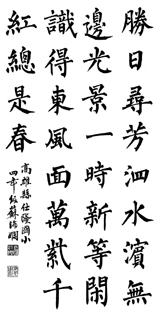 勝日尋芳泗水濱無
邊光景一時新等閑
識得東風面萬紫千
紅總是春
高雄縣仕隆國小
四年級蘇